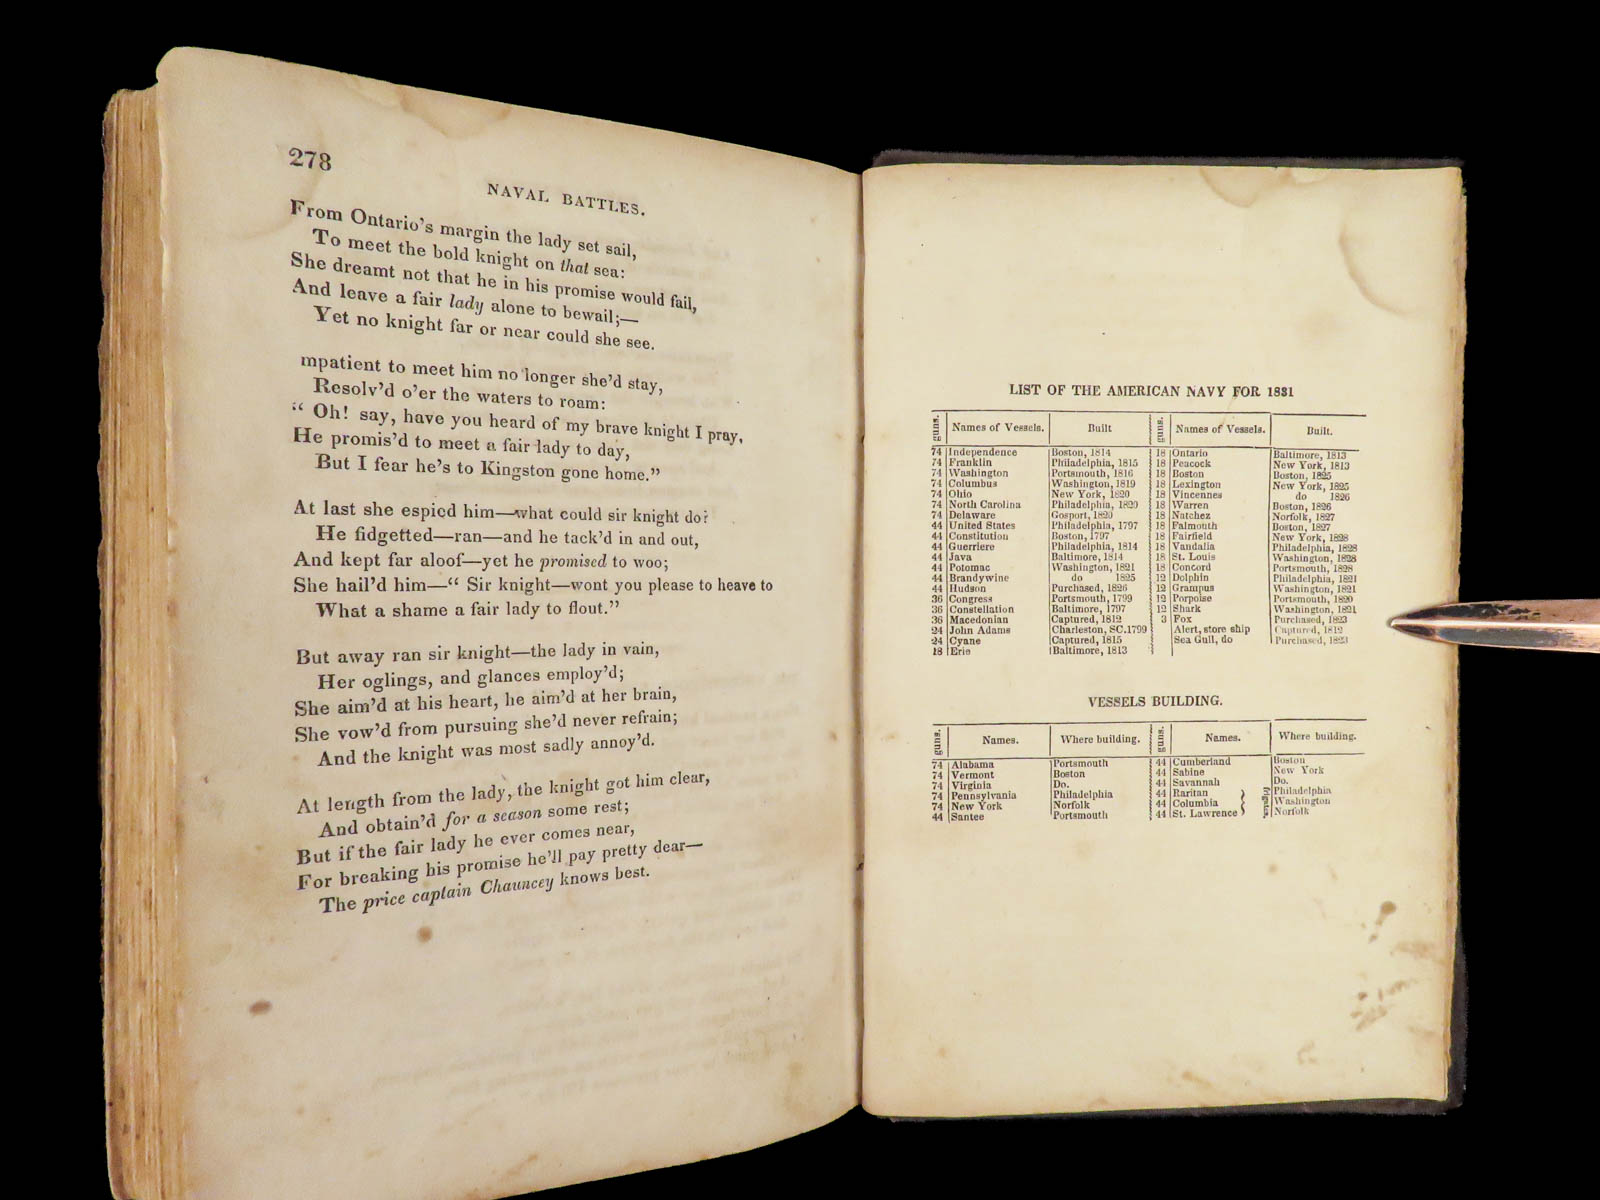 278
NAVAL BATTLES.
From Ontario's margin the lady set sail,
To meet the bold knight on that sea:
She dreamt not that he in his promise would fail,
And leave a fair lady alone to bewail;—
Yet no knight far or near could she see.
mpatient to meet him no longer she'd stay,
Resolv'd o'er the waters to roam:
“ Oh! say, have you heard of my brave knight I pray,
He promis'd to meet a fair lady to day,
But I fear he's to Kingston gone home.”
At last she espied him—what could sir knight do?
He fidgetted—ran—and he tack'd in and out,
And kept far aloof—yet he promised to woo;
She hail'd him—“ Sir knight—wont you please to heave to
What a shame a fair lady to flout.”
But away ran sir knight—the lady in vain,
Her oglings, and glances employ'd;
She aim'd at his heart, he aim'd at her brain,
She vow'd from pursuing she'd never refrain;
And the knight was most sadly annoy'd.
At length from the lady, the knight got him clear,
And obtain'd for a season some rest;
But if the fair lady he ever comes near,
For breaking his promise he'll pay pretty dear—
The price captain Chauncey knows best.
LIST OF THE AMERICAN NAVY FOR 1831
guns. Names of Vessels. Built guns. Names of Vessels. Built.
74 Independence Boston, 1814 18 Ontario Baltimore, 1813
74 Franklin Philadelphia, 1815 18 Peacock New York, 1813
74 Washington Portsmouth, 1816 18 Boston Boston, 1825
74 Columbus Washington, 1819 18 Lexington New York, 1825
74 Ohio New York, 1820 18 Vincennes do 1826
74 North Carolina Philadelphia, 1820 18 Warren Boston, 1826
74 Delaware Gosport, 1820 18 Natchez Norfolk, 1827
44 United States Philadelphia, 1797 18 Falmouth Boston, 1827
44 Constitution Boston, 1797 18 Fairfield New York, 1828
44 Guerriere Philadelphia, 1814 18 Vandalia Philadelphia, 1828
44 Java Baltimore, 1814 18 St. Louis Washington, 1828
44 Potomac Washington, 1821 18 Concord Portsmouth, 1828
44 Brandywine do 1825 12 Dolphin Philadelphia, 1821
44 Hudson Purchased, 1826 12 Grampus Washington, 1821
36 Congress Portsmouth, 1799 12 Porpoise Portsmouth, 1820
36 Constellation Baltimore, 1797 12 Shark Washington, 1821
36 Macedonian Captured, 1812 3 Fox Purchased, 1823
24 John Adams Charleston, SC.1799 Alert, store ship Captured, 1812
24 Cyane Captured, 1815 Sea Gull, do Purchased, 1823
18 Erie Baltimore, 1813
VESSELS BUILDING.
guns. Names. Where building. guns. Names. Where building.
74 Alabama Portsmouth 44 Cumberland Boston
74 Vermont Boston 44 Sabine New York
74 Virginia Do. 44 Savannah Do.
74 Pennsylvania Philadelphia 44 Raritan Philadelphia
74 New York Norfolk 44 Columbia Washington
44 Santee Portsmouth 44 St. Lawrence Norfolk